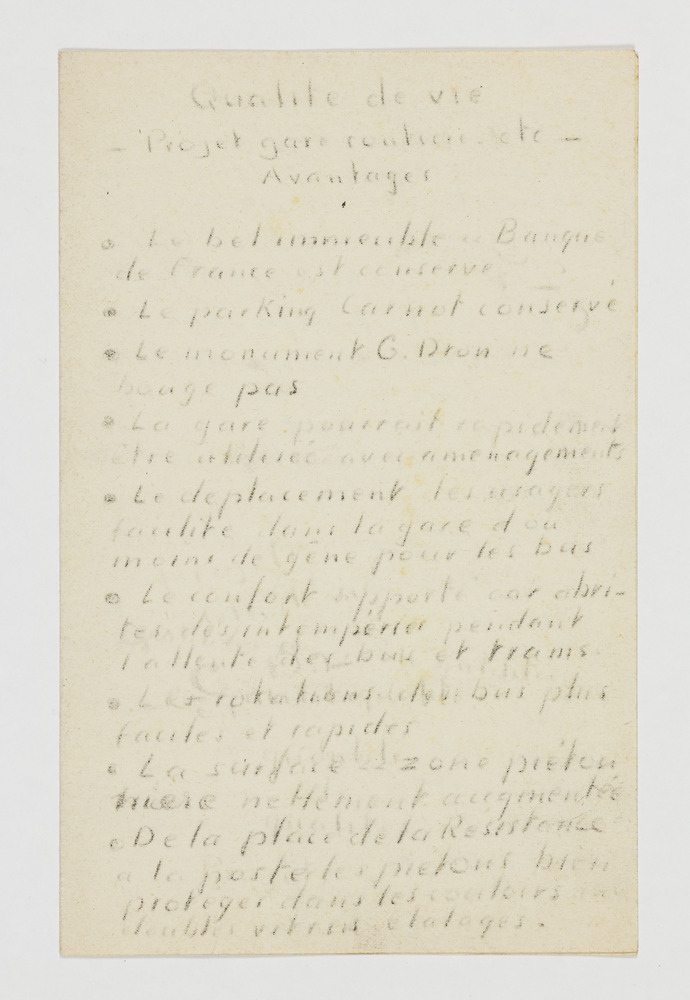 Qualité de vie
- Projet gare routière etc -
Avantages
• Le bel immeuble Banque
de France est conservé
• Le parking Carnot conservé
• Le monument G. Dron ne
bouge pas
• La gare pourrait rapidement
être utilisée avec aménagements
• Le déplacement des usagers
facilité dans la gare d'où
moins de gêne pour les bus
• Le confort apporté car abri-
tés des intempéries pendant
l'attente des bus et trams.
• Les rotations des bus plus
faciles et rapides
• La surface zone piéton
nière nettement augmentée
• De la place de la Résistance
à la poste les piétons bien
protégés dans les couloirs
doubles vitrines étalages.